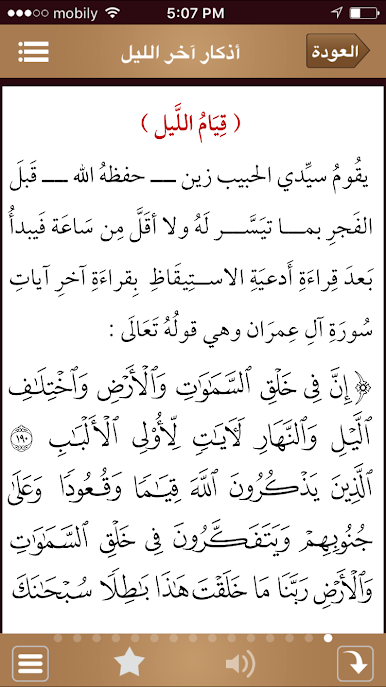 mobily 5:07 PM
أذكار آخر الليل
العودة
( قِيَامُ اللَّيل )
يقُومُ سيِّدي الحبيب زين ـــ حفظهُ الله ـــ قَبلَ
الفَجرِ بمـــا تيَسَّـــر لَهُ ولا أقَلَّ مِن سَاعَة فَيبدأُ
بَعدَ قِراءَةِ أَدعيَةِ الاســتِيقَاظِ بِقراءَةِ آخرِ آياتِ
سُورَةِ آلِ عِمرَان وهي قولُهُ تَعَالَى :
﴿ إِنَّ فِى خَلْقِ ٱلسَّمَـٰوَٰتِ وَٱلْأَرْضِ وَٱخْتِلَـٰفِ
ٱلَّيْلِ وَٱلنَّهَارِ لَـَٔايَـٰتٍ لِّأُو۟لِى ٱلْأَلْبَـٰبِ ١٩٠
ٱلَّذِينَ يَذْكُرُونَ ٱللَّهَ قِيَـٰمًا وَقُعُودًا وَعَلَىٰ
جُنُوبِهِمْ وَيَتَفَكَّرُونَ فِى خَلْقِ ٱلسَّمَـٰوَٰتِ
وَٱلْأَرْضِ رَبَّنَا مَا خَلَقْتَ هَـٰذَا بَـٰطِلًا سُبْحَـٰنَكَ